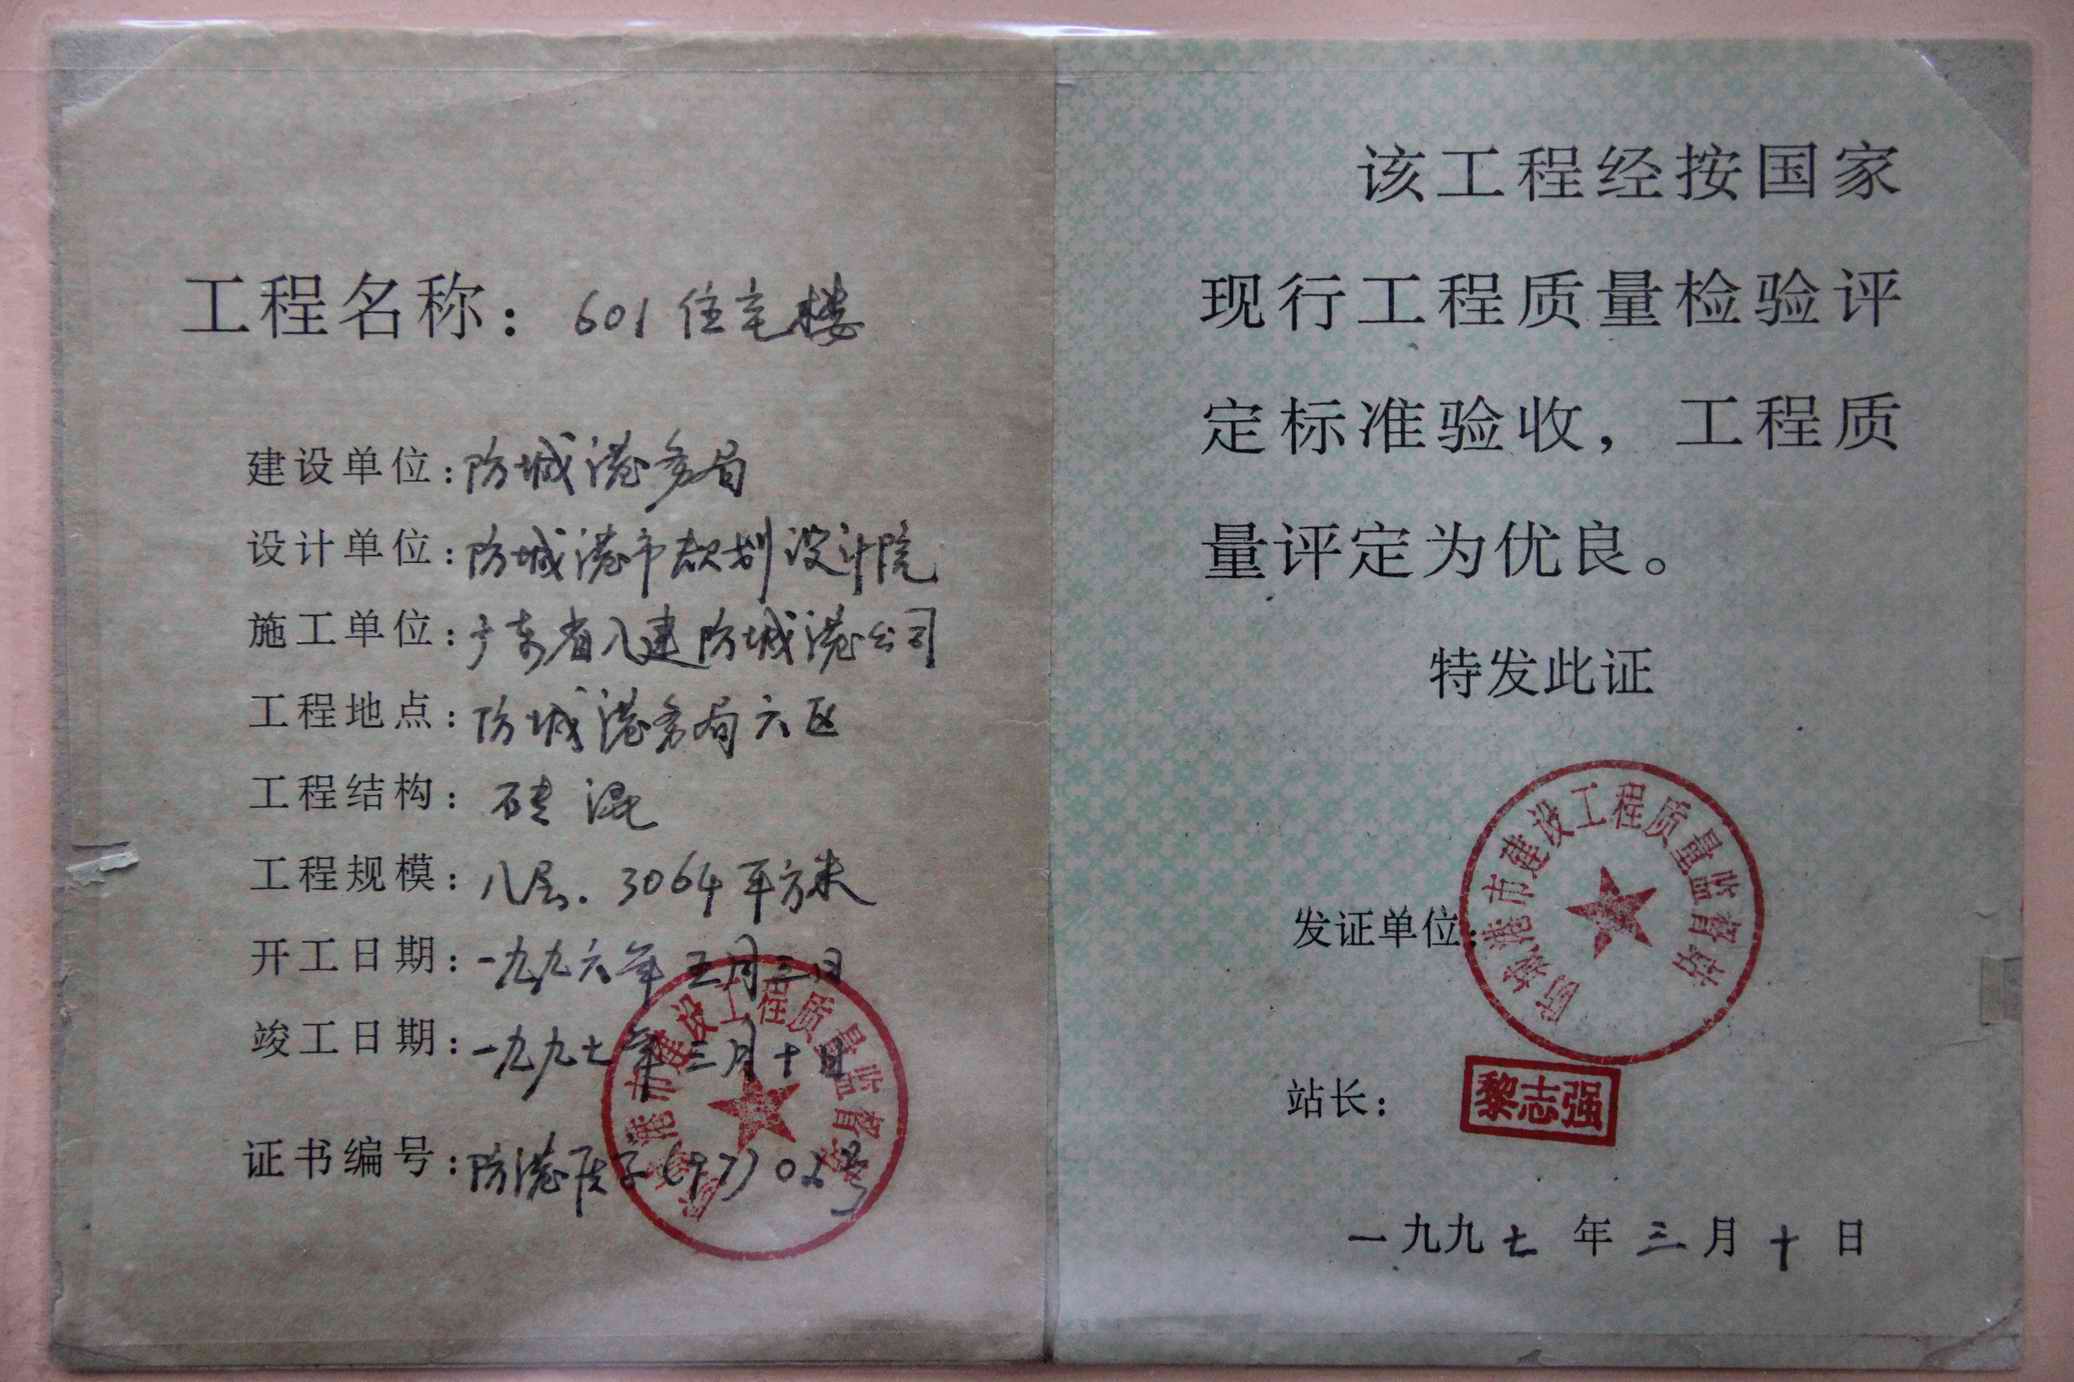 工程名称：601住宅楼
建设单位：防城港务局
设计单位：防城港市规划设计院
施工单位：广东省八建防城港公司
工程地点：防城港务局六区
工程结构：砖混
工程规模：八层.3064平方米
开工日期：一九九六年五月三日
竣工日期：一九九七年三月十日
证书编号：防港质字(97)02号
防城港市建设工程质量监督站
该工程经按国家
现行工程质量检验评
定标准验收，工程质
量评定为优良。
特发此证
发证单位：
防城港市建设工程质量监督站
站长：黎志强
一九九七年三月十日